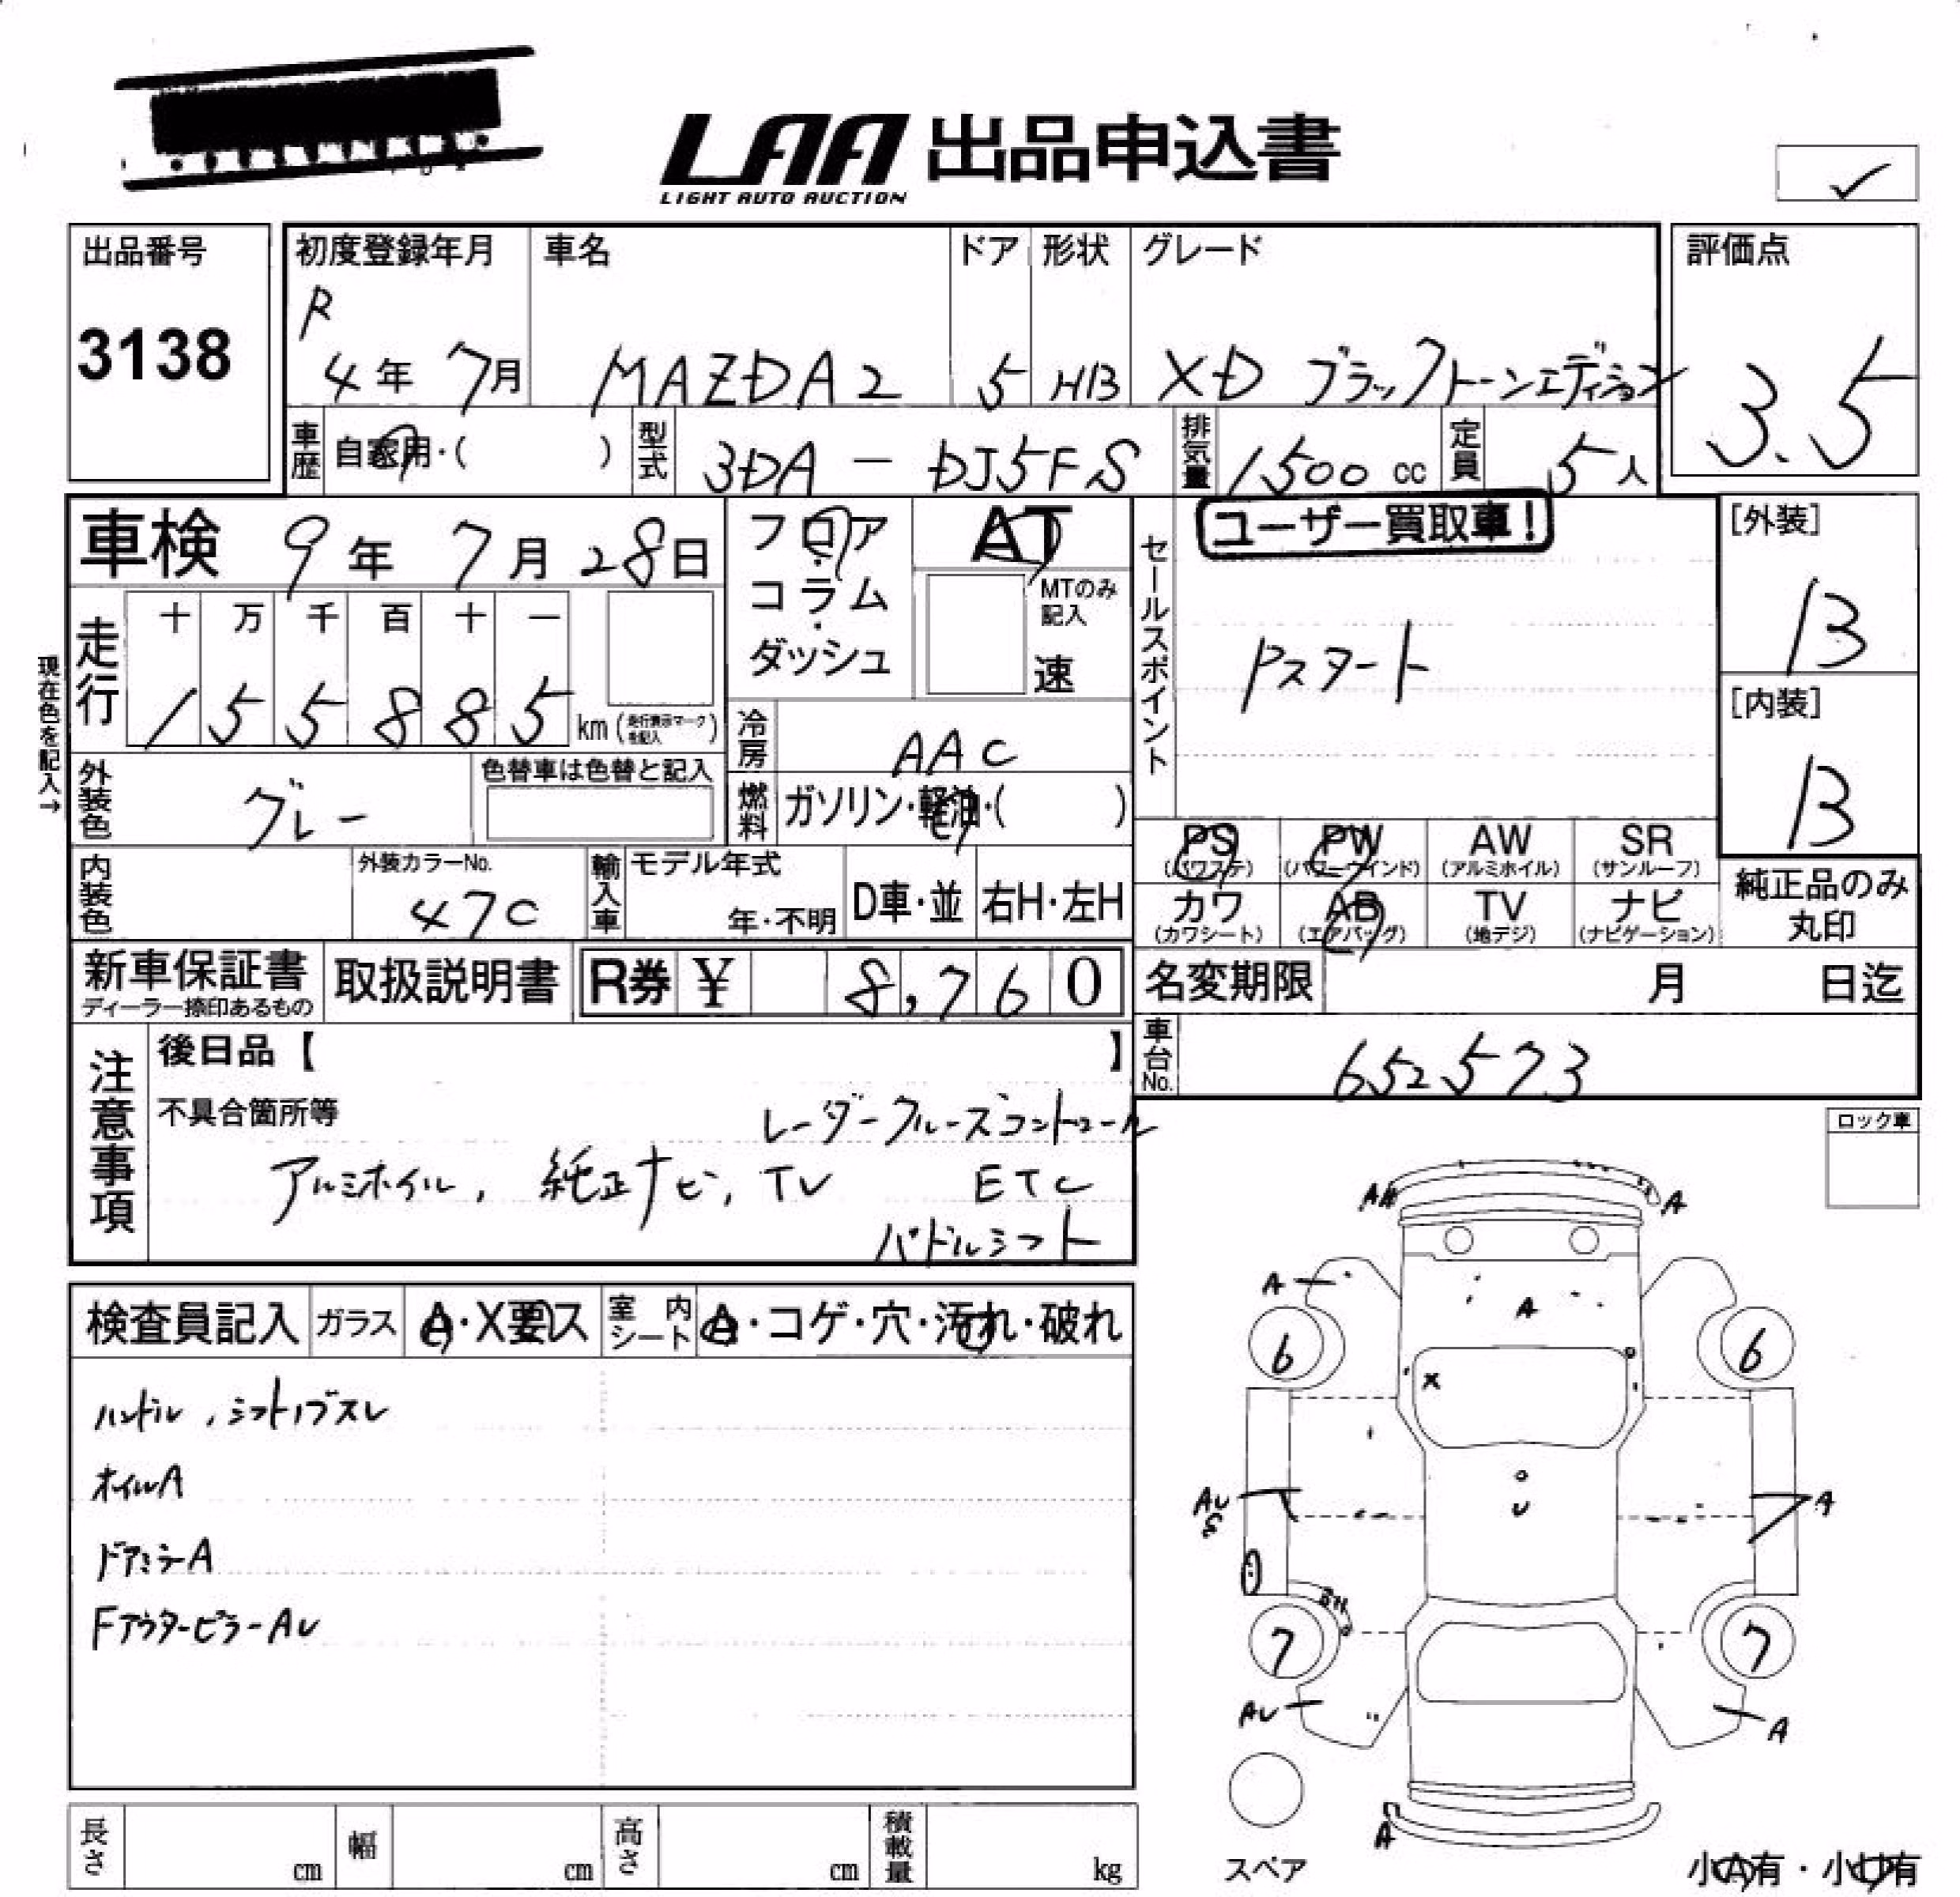 LAA 出品申込書
LIGHT AUTO AUCTION
出品番号
3138
初度登録年月
R
4年 7月
車名
MAZDA2
ドア
5
形状
HB
グレード
XD ブラックトーンエディション
評価点
3.5
車歴 自家用・( )
型式 3DA-DJ5FS
排気量 1500 cc
定員 5人
車検 9年 7月 28日
フロア・コラム・ダッシュ
AT
MTのみ記入
速
セールスポイント
ユーザー買取車!
Pスタート
[外装]
B
[内装]
B
現在色を記入→
走行
十 万 千 百 十 一
1 5 5 8 8 5 km (走行表示マークを記入)
冷房 AAC
燃料 ガソリン・軽油・( )
外装色 グレー
色替車は色替と記入
内装色
外装カラーNo.
47C
輸入車
モデル年式
年・不明
D車・並
右H・左H
PS (パワステ)
PW (パワーウインド)
AW (アルミホイル)
SR (サンルーフ)
カワ (カワシート)
AB (エアバッグ)
TV (地デジ)
ナビ (ナビゲーション)
純正品のみ
丸印
新車保証書
ディーラー捺印あるもの
取扱説明書
R券 ¥ 8,760
名変期限 月 日迄
車台No. 652573
注意事項
後日品【 】
不具合箇所等
レーダークルーズコントロール
アルミホイル, 純正ナビ, TV ETC
パドルシフト
ロック車
検査員記入
ガラス
A・X要ス
室内シート
A・コゲ・穴・汚れ・破れ
ハンドル, シフトノブスレ
ホイルA
ドアミラーA
FアウターピラーAU
A
A
A
6
6
X
U
AU
S
A
7
7
AU
A
A
スペア
小A有・小U有
長さ cm
幅 cm
高さ cm
積載量 kg